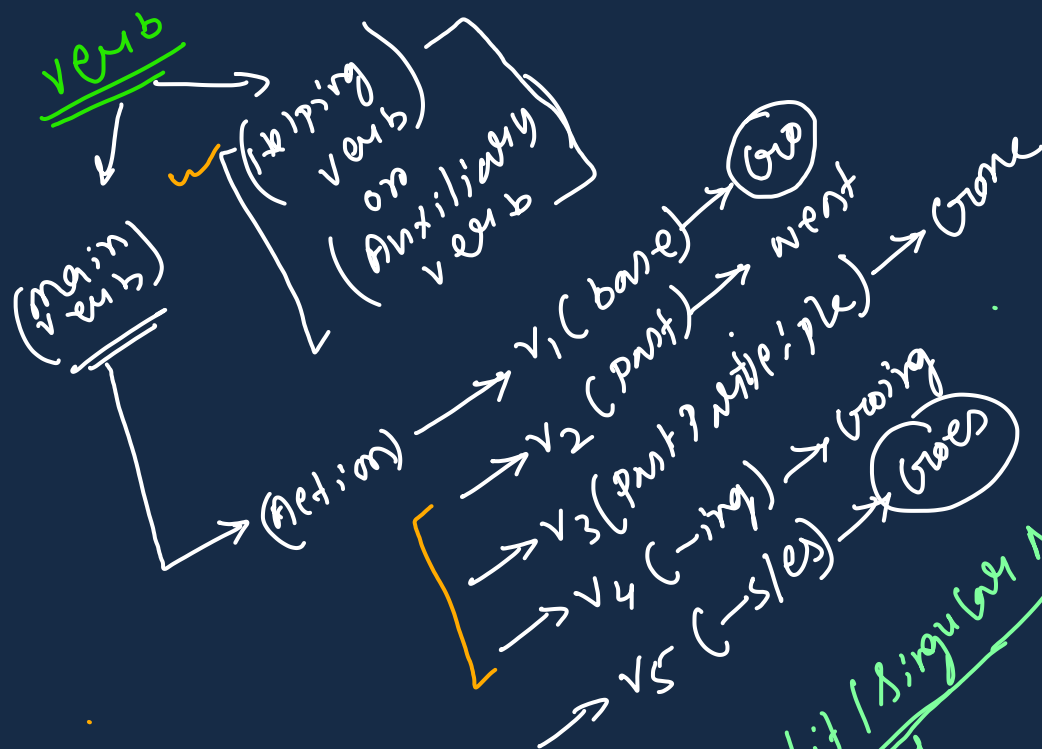 verb
(Helping
verb)
or
(Auxiliary
verb
(main
verb)
(Action)
V1 (base) → Go
V2 (past) → went
V3 (past participle) → Gone
V4 (-ing) → Going
V5 (-s/es) → Goes
/ Singular